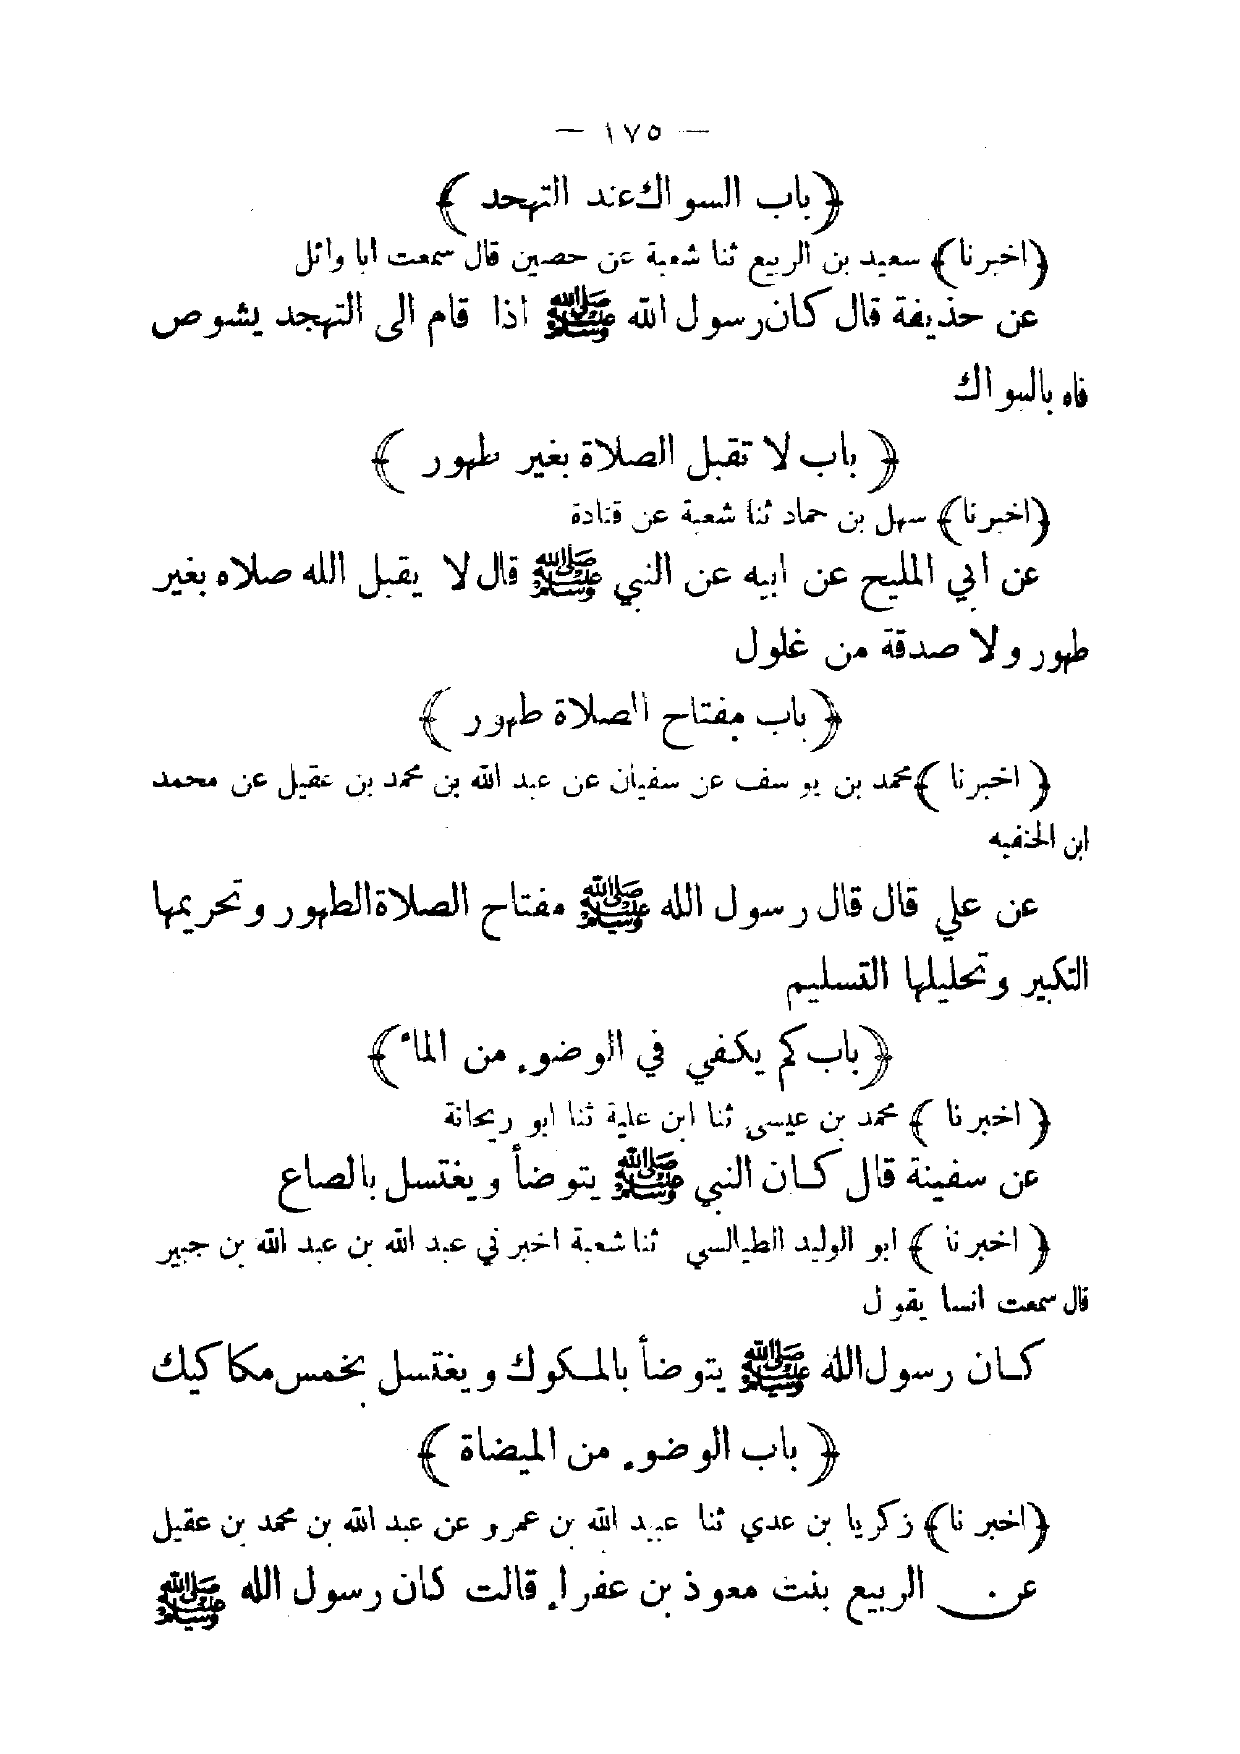 — ١٧٥ —
﴿ باب السواك عند التهجد ﴾
﴿ اخبرنا ﴾ سعيد بن الربيع ثنا شعبة عن حصين قال سمعت ابا وائل
عن حذيفة قال كان رسول الله ﷺ اذا قام الى التهجد يشوص
فاه بالسواك
﴿ باب لا تقبل الصلاة بغير طهور ﴾
﴿ اخبرنا ﴾ سهل بن حماد ثنا شعبة عن قتادة
عن ابي المليح عن ابيه عن النبي ﷺ قال لا يقبل الله صلاه بغير
طهور ولا صدقة من غلول
﴿ باب مفتاح الصلاة طهور ﴾
﴿ اخبرنا ﴾ محمد بن يوسف عن سفيان عن عبد الله بن محمد بن عقيل عن محمد
ابن الحنفيه
عن علي قال قال رسول الله ﷺ مفتاح الصلاة الطهور وتحريمها
التكبير وتحليلها التسليم
﴿ باب كم يكفي في الوضوء من الماء ﴾
﴿ اخبرنا ﴾ محمد بن عيسى ثنا ابن علية ثنا ابو ريحانة
عن سفينة قال كان النبي ﷺ يتوضأ ويغتسل بالصاع
﴿ اخبرنا ﴾ ابو الوليد الطيالسي ثنا شعبة اخبرني عبد الله بن عبد الله بن جبير
قال سمعت انسا يقول
كان رسول الله ﷺ يتوضأ بالمكوك ويغتسل بخمس مكاكيك
﴿ باب الوضوء من الميضاة ﴾
﴿ اخبرنا ﴾ زكريا بن عدي ثنا عبيد الله بن عمرو عن عبد الله بن محمد بن عقيل
عن الربيع بنت معوذ بن عفراء قالت كان رسول الله ﷺ